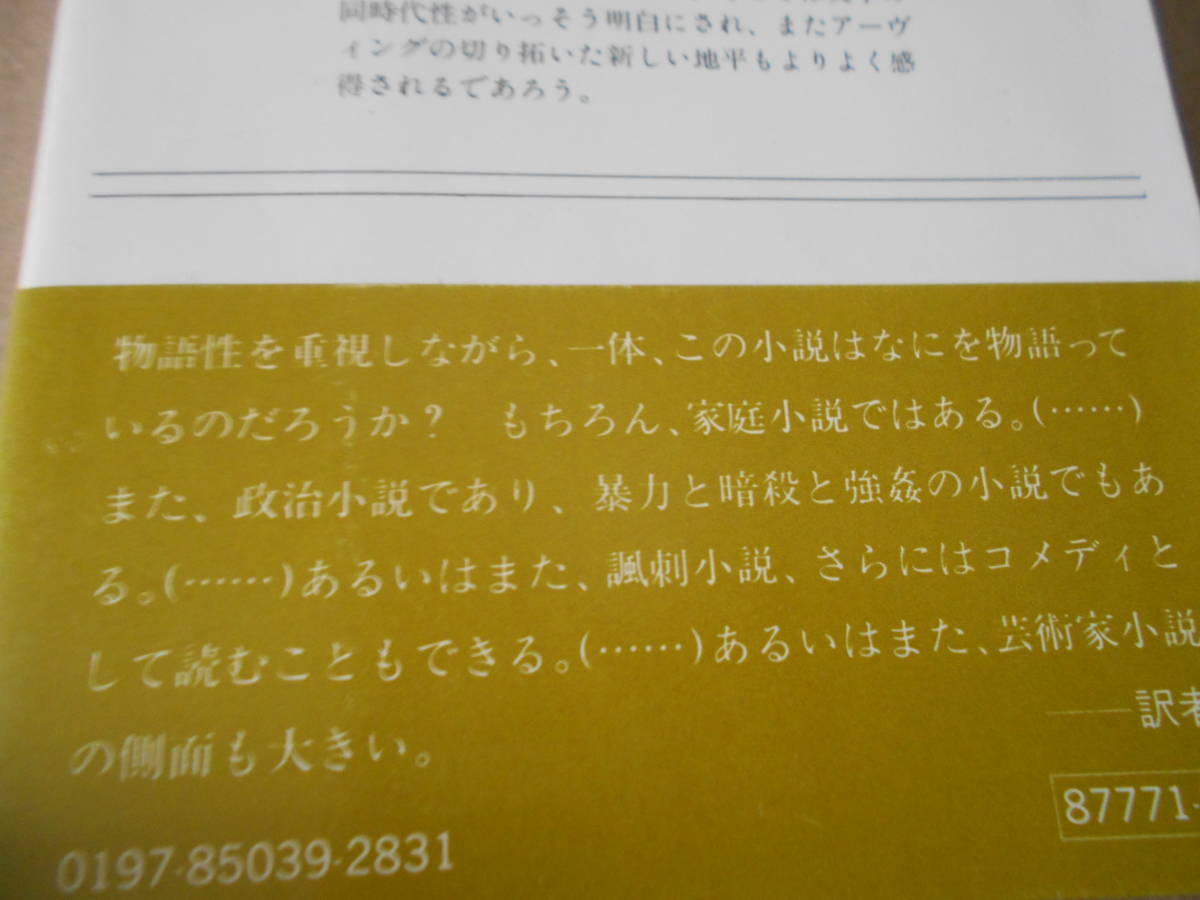 同時代性がいっそう明白にされ、またアーヴ
ィングの切り拓いた新しい地平もよりよく感
得されるであろう。
物語性を重視しながら、一体、この小説はなにを物語って
いるのだろうか？　もちろん、家庭小説ではある。(……)
また、政治小説であり、暴力と暗殺と強姦の小説でもあ
る。(……)あるいはまた、諷刺小説、さらにはコメディと
して読むこともできる。(……)あるいはまた、芸術家小説
の側面も大きい。
――訳者
87771-
0197-85039-2831